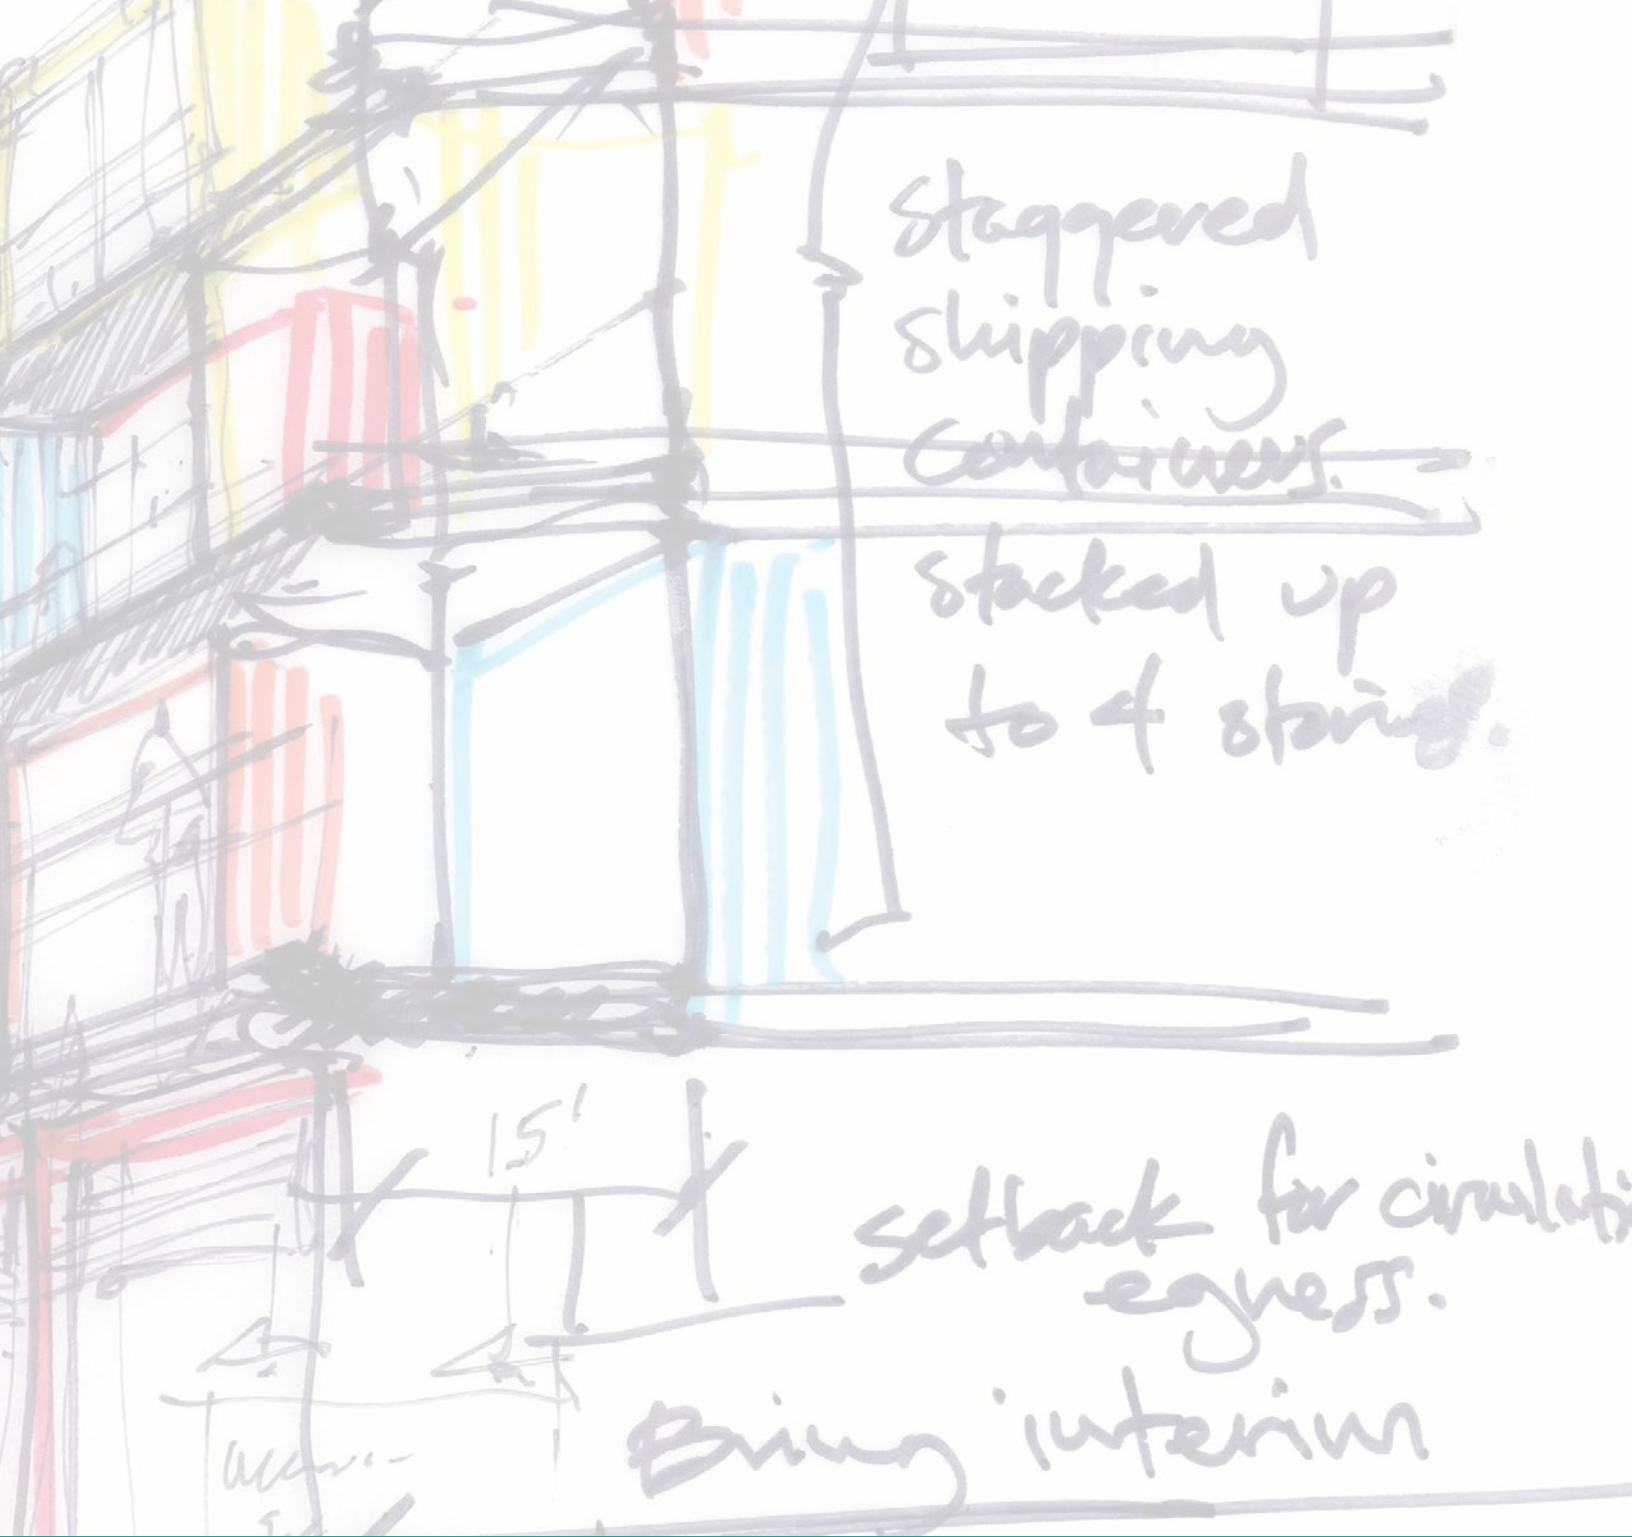 staggered
shipping
containers.
stacked up
to 4 stories.
15'
setback for circulati
egress.
Bring interim